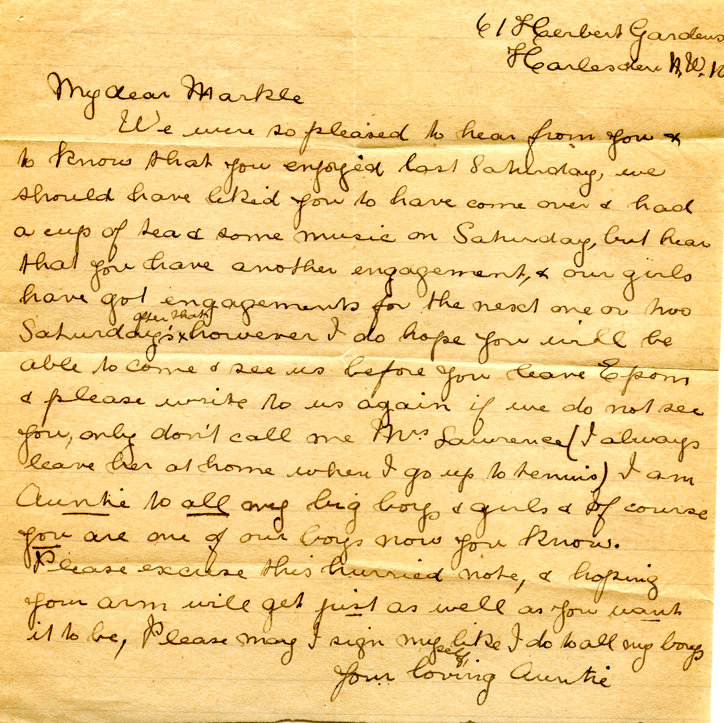 61 Haerbert Gardens
Harlesden N.W.10
My dear Markle
We were so pleased to hear from you &
to know that you enjoyed last Saturday, we
should have liked you to have come over & had
a cup of tea & some music on Saturday, but hear
that you have another engagement, & our girls
have got engagements for the next one or two
Saturdays after that however I do hope you will be
able to come & see us before you leave Epsom
& please write to us again if we do not see
you, only don't call me Mrs Lawrence (I always
leave her at home when I go up to tennis) I am
Auntie to all my big boys & girls & of course
you are one of our boys now you know.
Please excuse this hurried note, & hoping
your arm will get just as well as you want
it to be, Please may I sign myself like I do to all my boys
Your loving Auntie